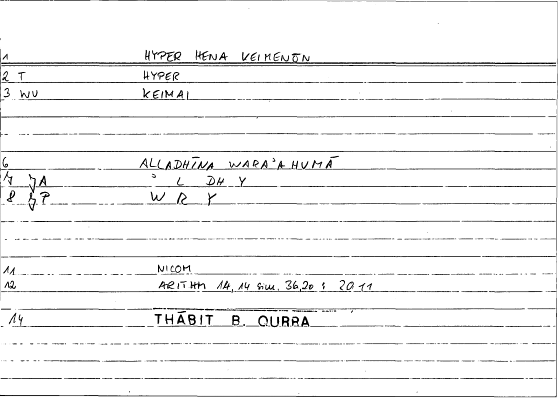 1 HYPER HENA KEIMENŌN
2 T HYPER
3 WV KEIMAI
6 ALLADHĪNA WARA'AHUMĀ
7 A ' L DH Y
8 P W R Y
11 NICOM
12 ARITHM 14,14 sim. 36,20 : 20 11
14 THĀBIT B. QURRA